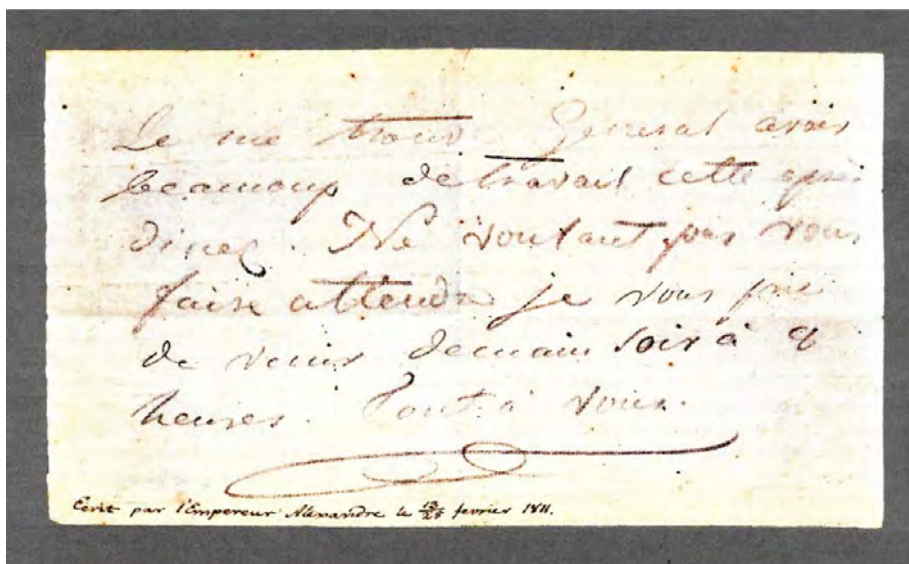 Je me trouve Général avoir
beaucoup de travail cette après
diner. Ne voulant pas vous
faire attendre je vous prie
de venir demain soir à
heures. Tout à vous.
Ecrit par l'Empereur Alexandre le 13/25 fevrier 1811.